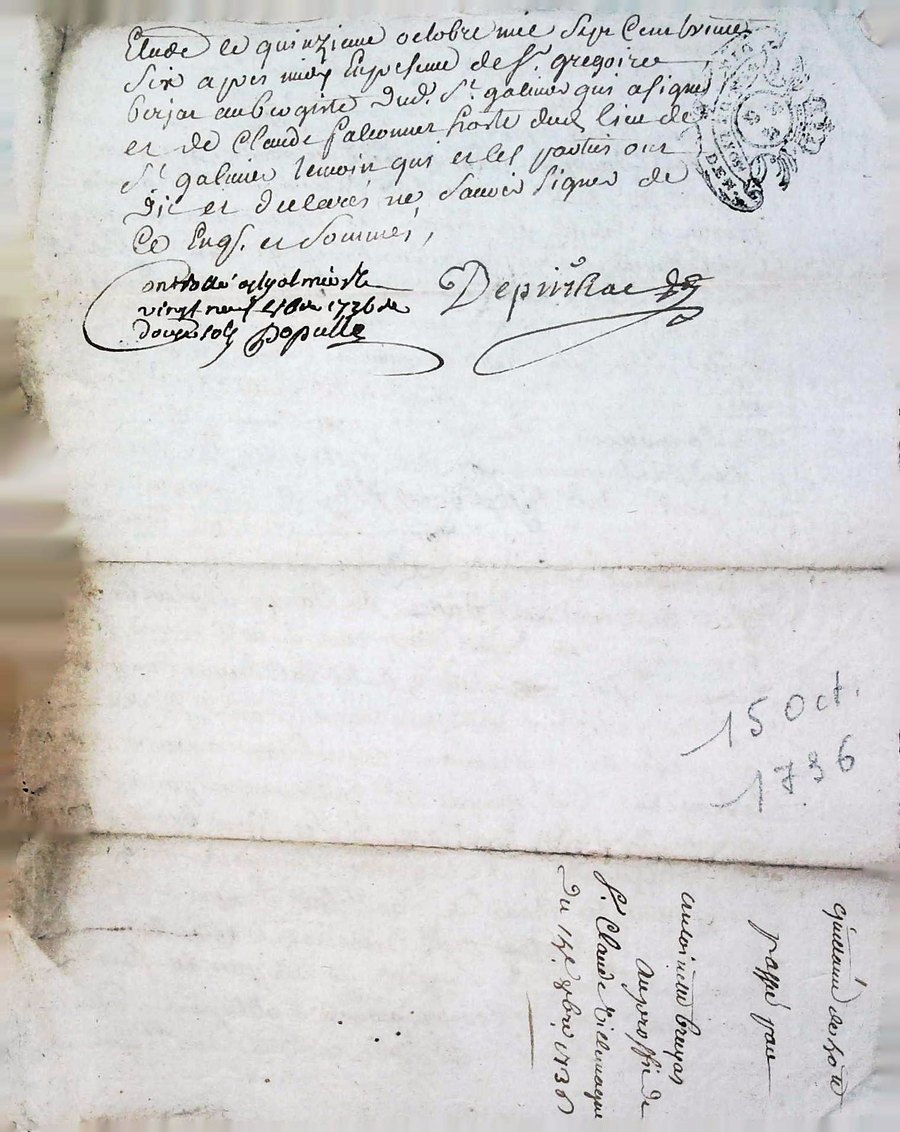 Etude le quinzieme octobre mil sept cent trente
six apres midy En presence de Sr. gregoire
berjat aubergiste dud. St galmier qui a signé
et de Claude falconnet hoste dud. lieu de
St galmier temoin qui et les parties ont
Dit et declarés ne savoir signer de
Ce Enqs. et sommés,
Controllé a St galmier le
vingt neuf 8bre 1736 Re
douze sols Populle
Depinhac
15 Oct.
1736
quittance de dotte
passé par
antoinette bruyas
au proffit de
Sr. Claude
Du 15e. 8bre 1736